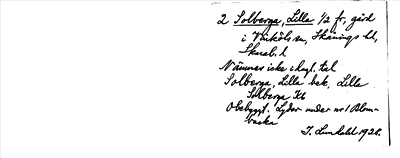 2 Solberga, Lilla 1/2 fr, gård
i Vinköls sn, Skånings hd,
Skarab. l
Nämnes icke i högt. tal
Solberga, Lilla bek. Lilla
Solberga Kb
Obebyggt. Lyder under nr 1 Blom-
backa
J. Lundahl 1928.